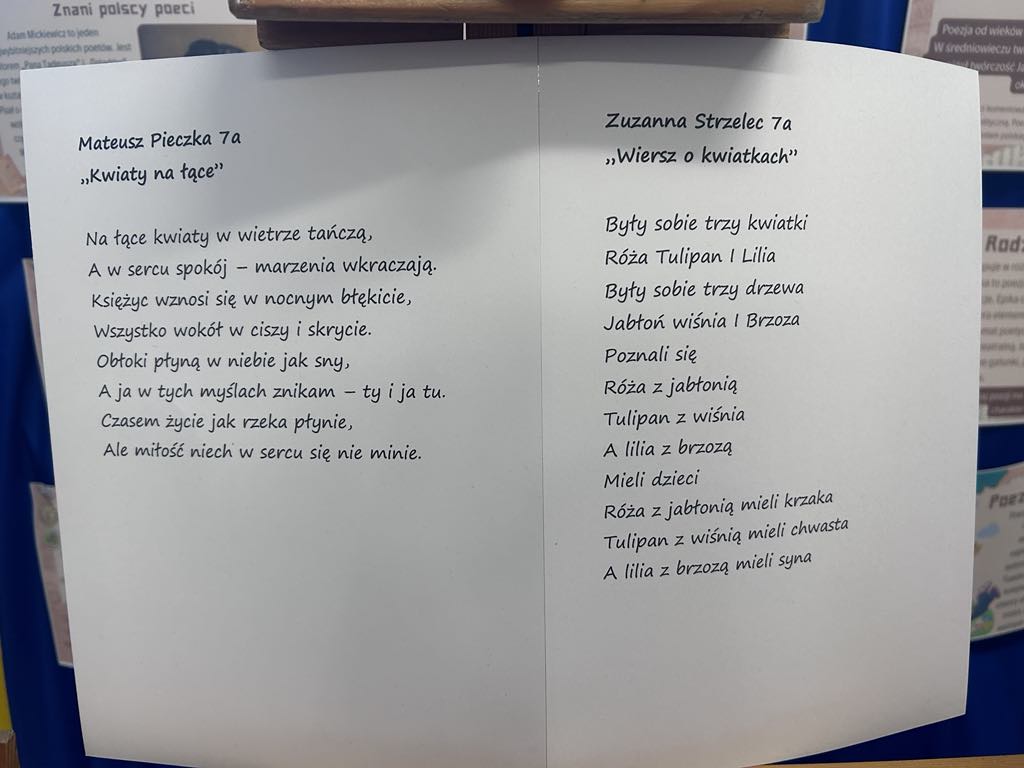 Znani polscy poeci
Adam Mickiewicz to jeden
polskich poetów. Jest
Mateusz Pieczka 7a
„Kwiaty na łące”
Na łące kwiaty w wietrze tańczą,
A w sercu spokój – marzenia wkraczają.
Księżyc wznosi się w nocnym błękicie,
Wszystko wokół w ciszy i skrycie.
Obłoki płyną w niebie jak sny,
A ja w tych myślach znikam – ty i ja tu.
Czasem życie jak rzeka płynie,
Ale miłość niech w sercu się nie minie.
Zuzanna Strzelec 7a
„Wiersz o kwiatkach”
Były sobie trzy kwiatki
Róża Tulipan I Lilia
Były sobie trzy drzewa
Jabłoń wiśnia I Brzoza
Poznali się
Róża z jabłonią
Tulipan z wiśnia
A lilia z brzozą
Mieli dzieci
Róża z jabłonią mieli krzaka
Tulipan z wiśnią mieli chwasta
A lilia z brzozą mieli syna
Poezja od wieków
W średniowieczu
twórczość